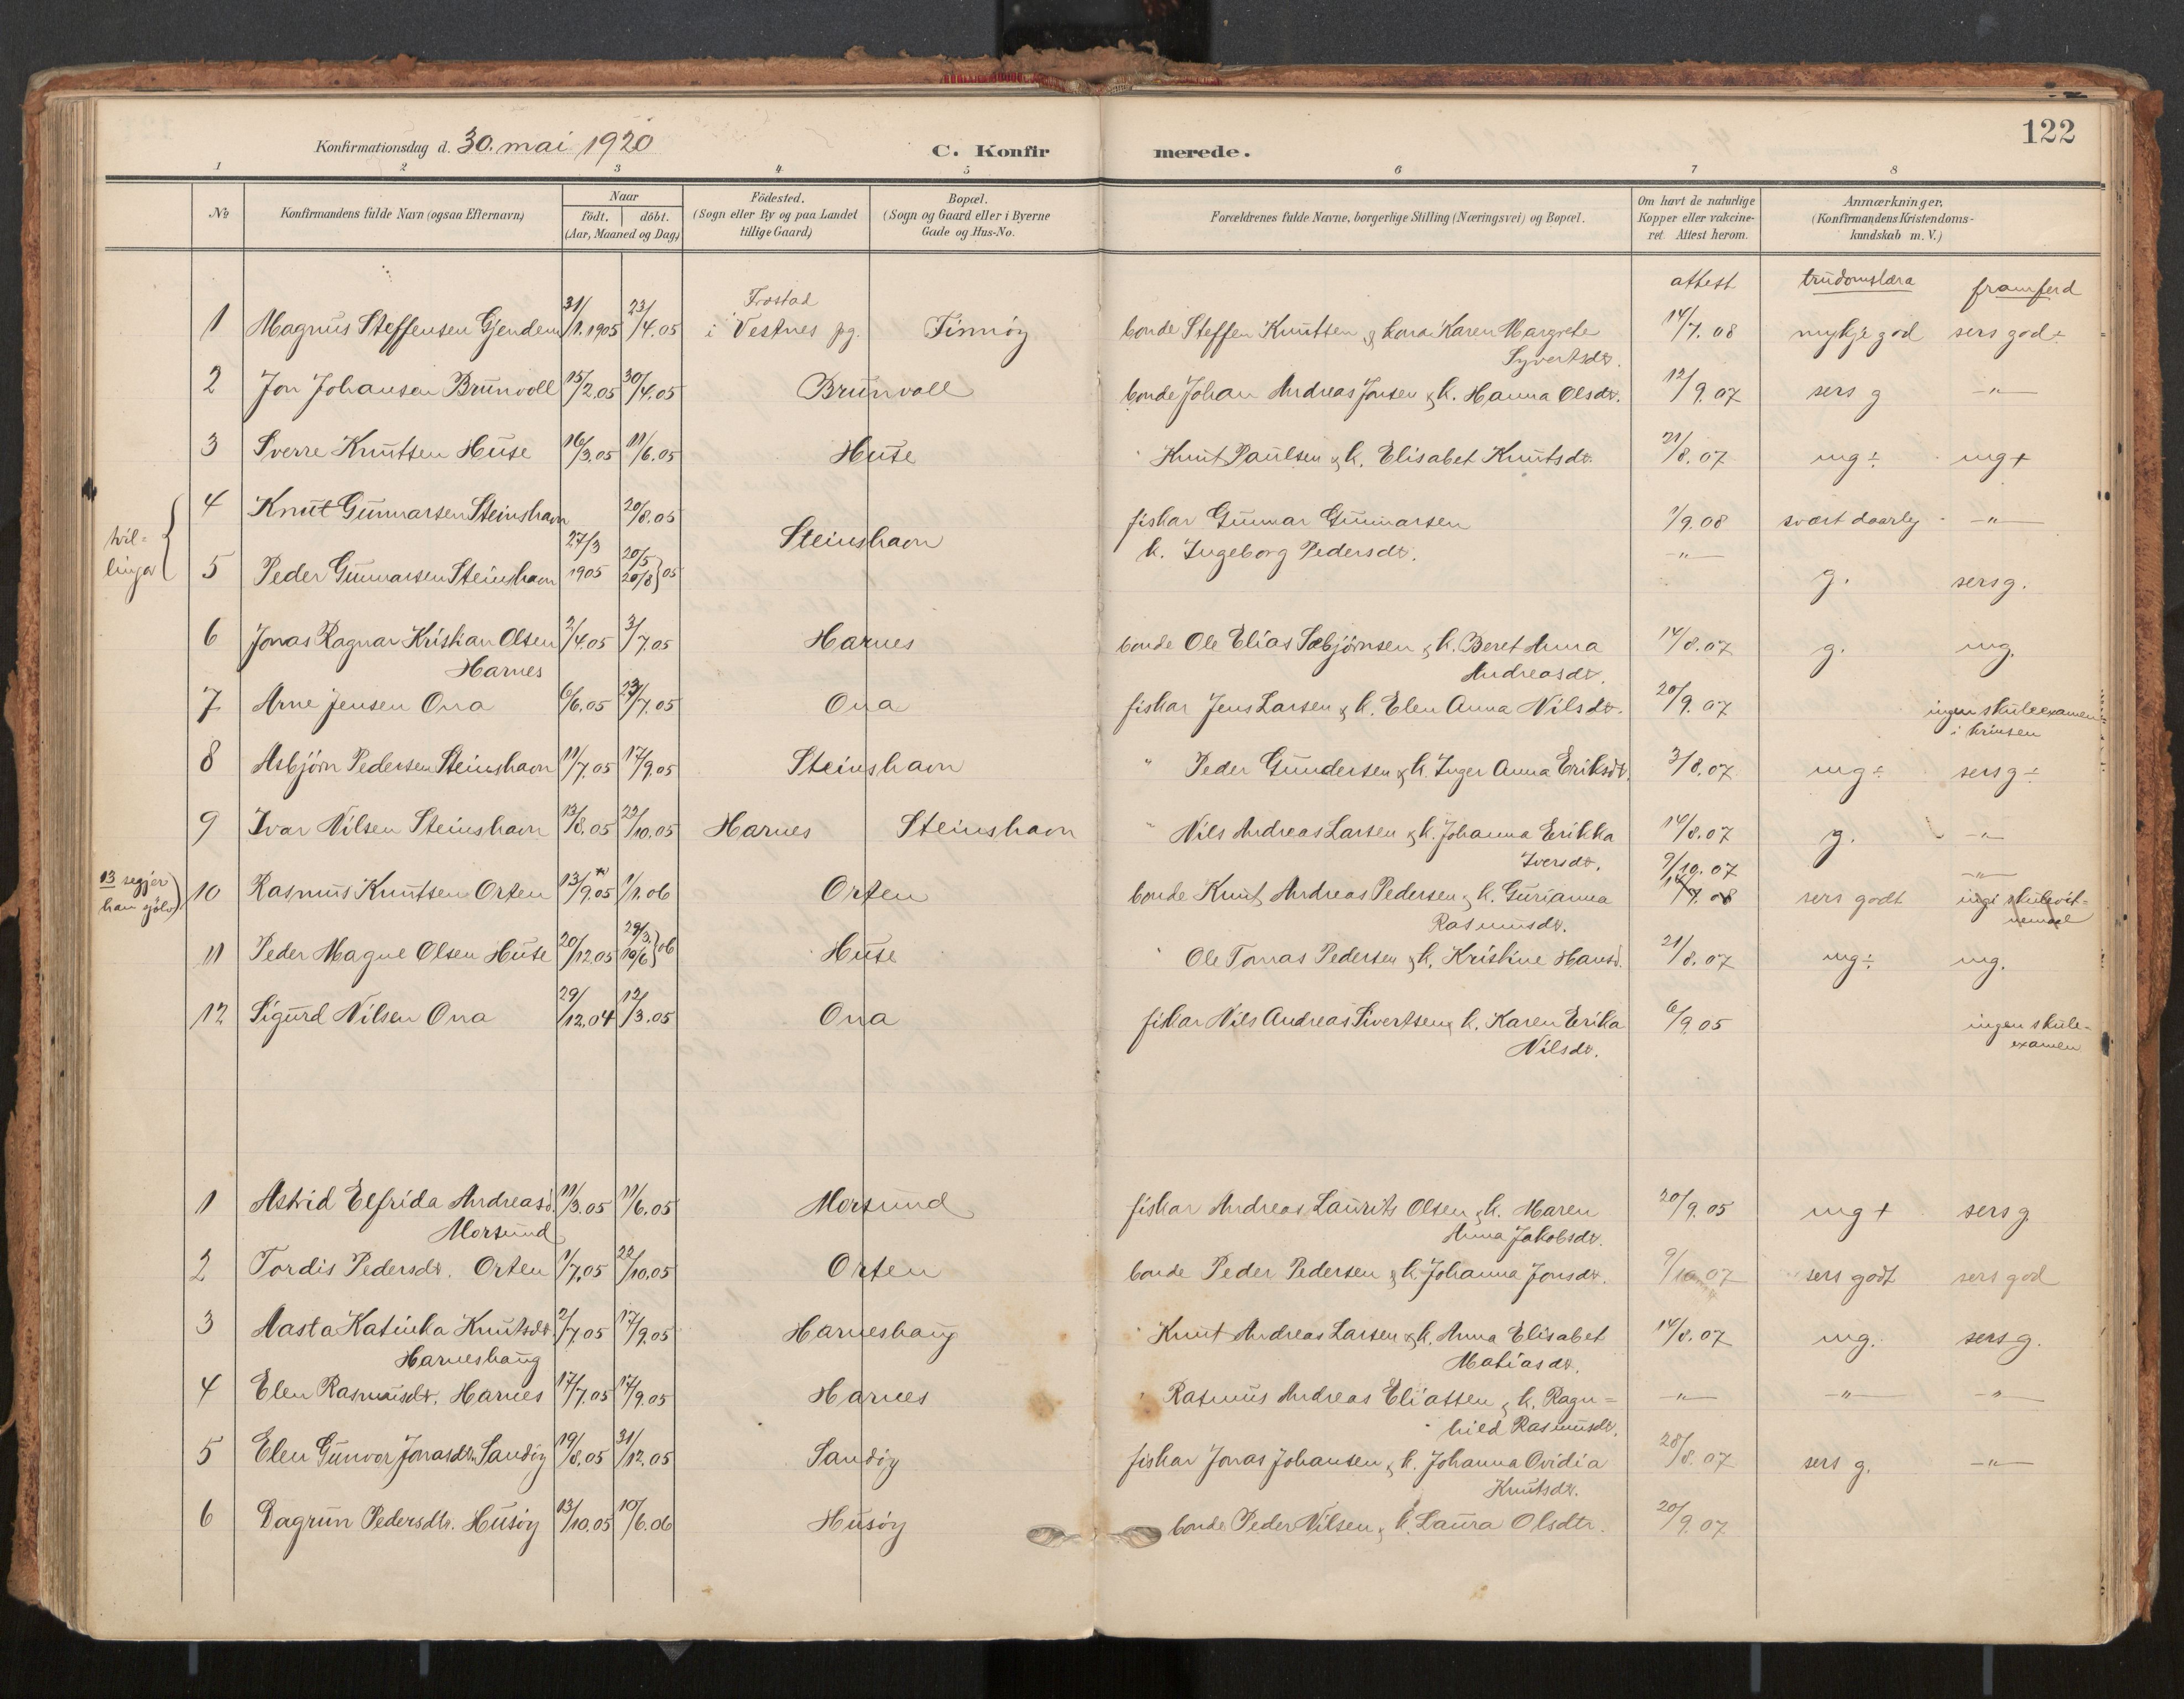 122
Konfirmationsdag d. 30. mai 1920 C. Konfir merede.
1 2 3 4 5 6 7 8
No Konfirmandens fulde Navn (ogsaa Efternavn) Naar födt. döbt. (Aar, Maaned og Dag) Födested. (Sogn eller By og paa Landet tillige Gaard) Bopæl. (Sogn og Gaard eller i Byerne Gade og Hus-No. Forældrenes fulde Navne, borgerlige Stilling (Næringsvei) og Bopæl. Om havt de naturlige Kopper eller vakcineret Attest herom. Anmærkninger. (Konfirmandens Kristendomskundskab m. V.)
attest trudomslæra framferd
1 Magnus Steffensen Gjendem 31/1.1905 23/4.05 i Vestnes pg. Finnöy bonde Steffen Knutsen & kona Karen Margrete 14/7.08 mykje god sers god ÷
Syvertsdr.
2 Jon Johansen Brunvoll 15/2.05 30/4.05 Brunvoll bonde Johan Andreas Jonsen & k. Hanna Olsdr. 12/9.07 sers g —"—
3 Sverre Knutsen Huse 16/3.05 11/6.05 Huse " Knut Paulsen & k. Elisabet Knutsdr. 21/8.07 mg ÷ mg +
tvil=
lingar
4 Knut Gunnarsen Steinshavn 20/8.05 fiskar Gunnar Gunnarsen 1/9.08 svært daarleg —"—
27/3 1905 Steinshavn k. Ingeborg Pedersdr. —"—
5 Peder Gunnarsen Steinshavn 20/5 20/8 } 05 g. sers g.
6 Jonas Ragnar Kristian Olsen 2/4.05 3/7.05 Harnes bonde Ole Elias Sæbjørnsen & k. Beret Anna 14/8.07 g. mg.
Harnes Andreasdr.
7 Arne Jensen Ona 6/6.05 23/7.05 Ona fiskar Jens Larsen & k. Elen Anna Nilsdr. 20/9.07 ingen skuleexamen
8 Asbjörn Pedersen Steinshavn 11/7.05 17/9.05 Steinshavn " Peder Gundersen & k. Inger Anna Eriksdr. 3/8.07 mg ÷ sers g ÷
9 Ivar Nilsen Steinshavn 13/8.05 22/10.05 Harnes Steinshavn " Nils Andreas Larsen & k. Johanna Erikka 14/8.07 g. —"—
Iversdr.
13 segjer
han sjölv
10 Rasmus Knutsen Orten 13/9.05 1/1.06 Orten bonde Knut Andreas Pedersen & k. Gurianna 9/10.07 sers godt ingi skulevit=
Rasmusdr. nemaal
11 Peder Magne Olsen Huse 20/12.05 10/6 } 06 Huse " Ole Tomas Pedersen & k. Kristine Hansd. 21/8.07 mg ÷ mg.
12 Sigurd Nilsen Ona 29/12.04 12/3.05 Ona fiskar Nils Andreas Sivertsen & k. Karen Erika 6/9.05 ingen skule-
Nilsdr. examen
1 Astrid Elfrida Andreasd. 11/3.05 11/6.05 Morsund fiskar Andreas Laurits Olsen & k. Maren 20/9.05 mg + sers g.
Morsund Anna Jakobsdr.
2 Tordis Pedersdr. Orten 1/7.05 22/10.05 Orten bonde Peder Pedersen & k. Johanna Jonsdr. 9/10.07 sers godt sers god
3 Aasta Katinka Knutsdr. 2/7.05 17/9.05 Harneshaug " Knut Andreas Larsen & k. Anna Elisabet 14/8.07 mg. sers g.
Harneshaug Matiasdr.
4 Elen Rasmusdr. Harnes 17/7.05 17/9.05 Harnes " Rasmus Andreas Eliassen & k. Ragn= —"— —"— —"—
hild Rasmusdr.
5 Elen Gunvor Jonasdr. Sandöy 19/8.05 31/12.05 Sandöy fiskar Jonas Johansen & k. Johanna Ovidia 28/8.07 sers g. —"—
Knutsdr.
6 Dagrun Pedersdtr. Husöy 13/10.05 10/6.06 Husöy bonde Peder Nilsen & k. Laura Olsdtr. 20/9.07